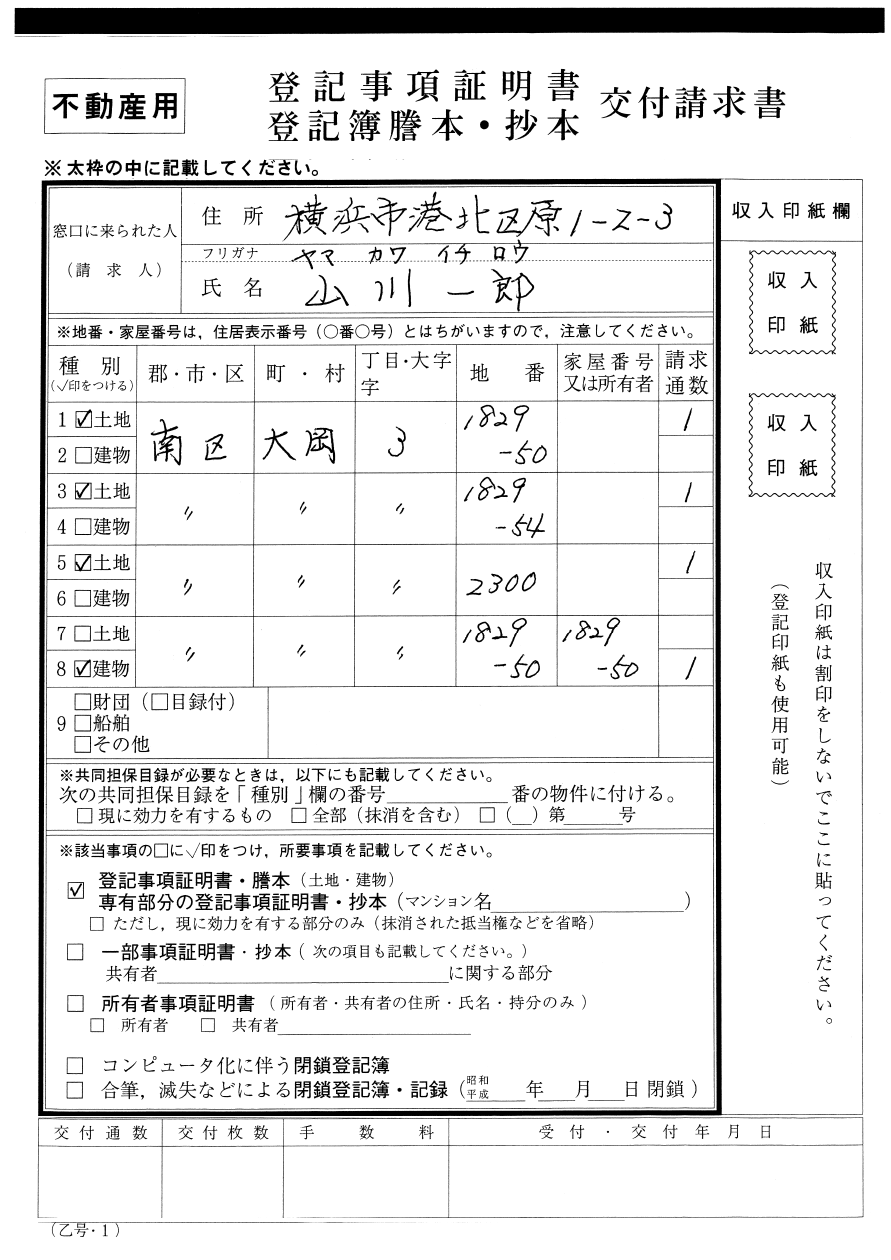 不動産用
登記事項証明書
登記簿謄本・抄本 交付請求書
※太枠の中に記載してください。
窓口に来られた人
(請求人)
住所 横浜市港北区原1-2-3
フリガナ ヤマ カワ イチ ロウ
氏名 山川一郎
収入印紙欄
収入
印紙
収入
印紙
収入印紙は割印をしないでここに貼ってください。
(登記印紙も使用可能)
※地番・家屋番号は,住居表示番号(○番○号)とはちがいますので,注意してください。
種別 (✓印をつける) 郡・市・区 町・村 丁目・大字 字 地番 家屋番号 又は所有者 請求 通数
1 ☑土地 南区 大岡 3 1829 1
2 □建物 -50
3 ☑土地 〃 〃 〃 1829 1
4 □建物 -54
5 ☑土地 〃 〃 〃 2300 1
6 □建物
7 □土地 〃 〃 〃 1829 1829
8 ☑建物 -50 -50 1
9 □財団(□目録付)
□船舶
□その他
※共同担保目録が必要なときは,以下にも記載してください。
次の共同担保目録を「種別」欄の番号____番の物件に付ける。
□現に効力を有するもの □全部(抹消を含む) □(__)第____号
※該当事項の□に✓印をつけ,所要事項を記載してください。
☑ 登記事項証明書・謄本(土地・建物)
専有部分の登記事項証明書・抄本(マンション名____)
□ ただし,現に効力を有する部分のみ(抹消された抵当権などを省略)
□ 一部事項証明書・抄本(次の項目も記載してください。)
共有者____に関する部分
□ 所有者事項証明書(所有者・共有者の住所・氏名・持分のみ)
□ 所有者 □ 共有者____
□ コンピュータ化に伴う閉鎖登記簿
□ 合筆,滅失などによる閉鎖登記簿・記録(昭和 平成____年____月____日閉鎖)
交付通数 交付枚数 手数料 受付・交付年月日
(乙号・1)